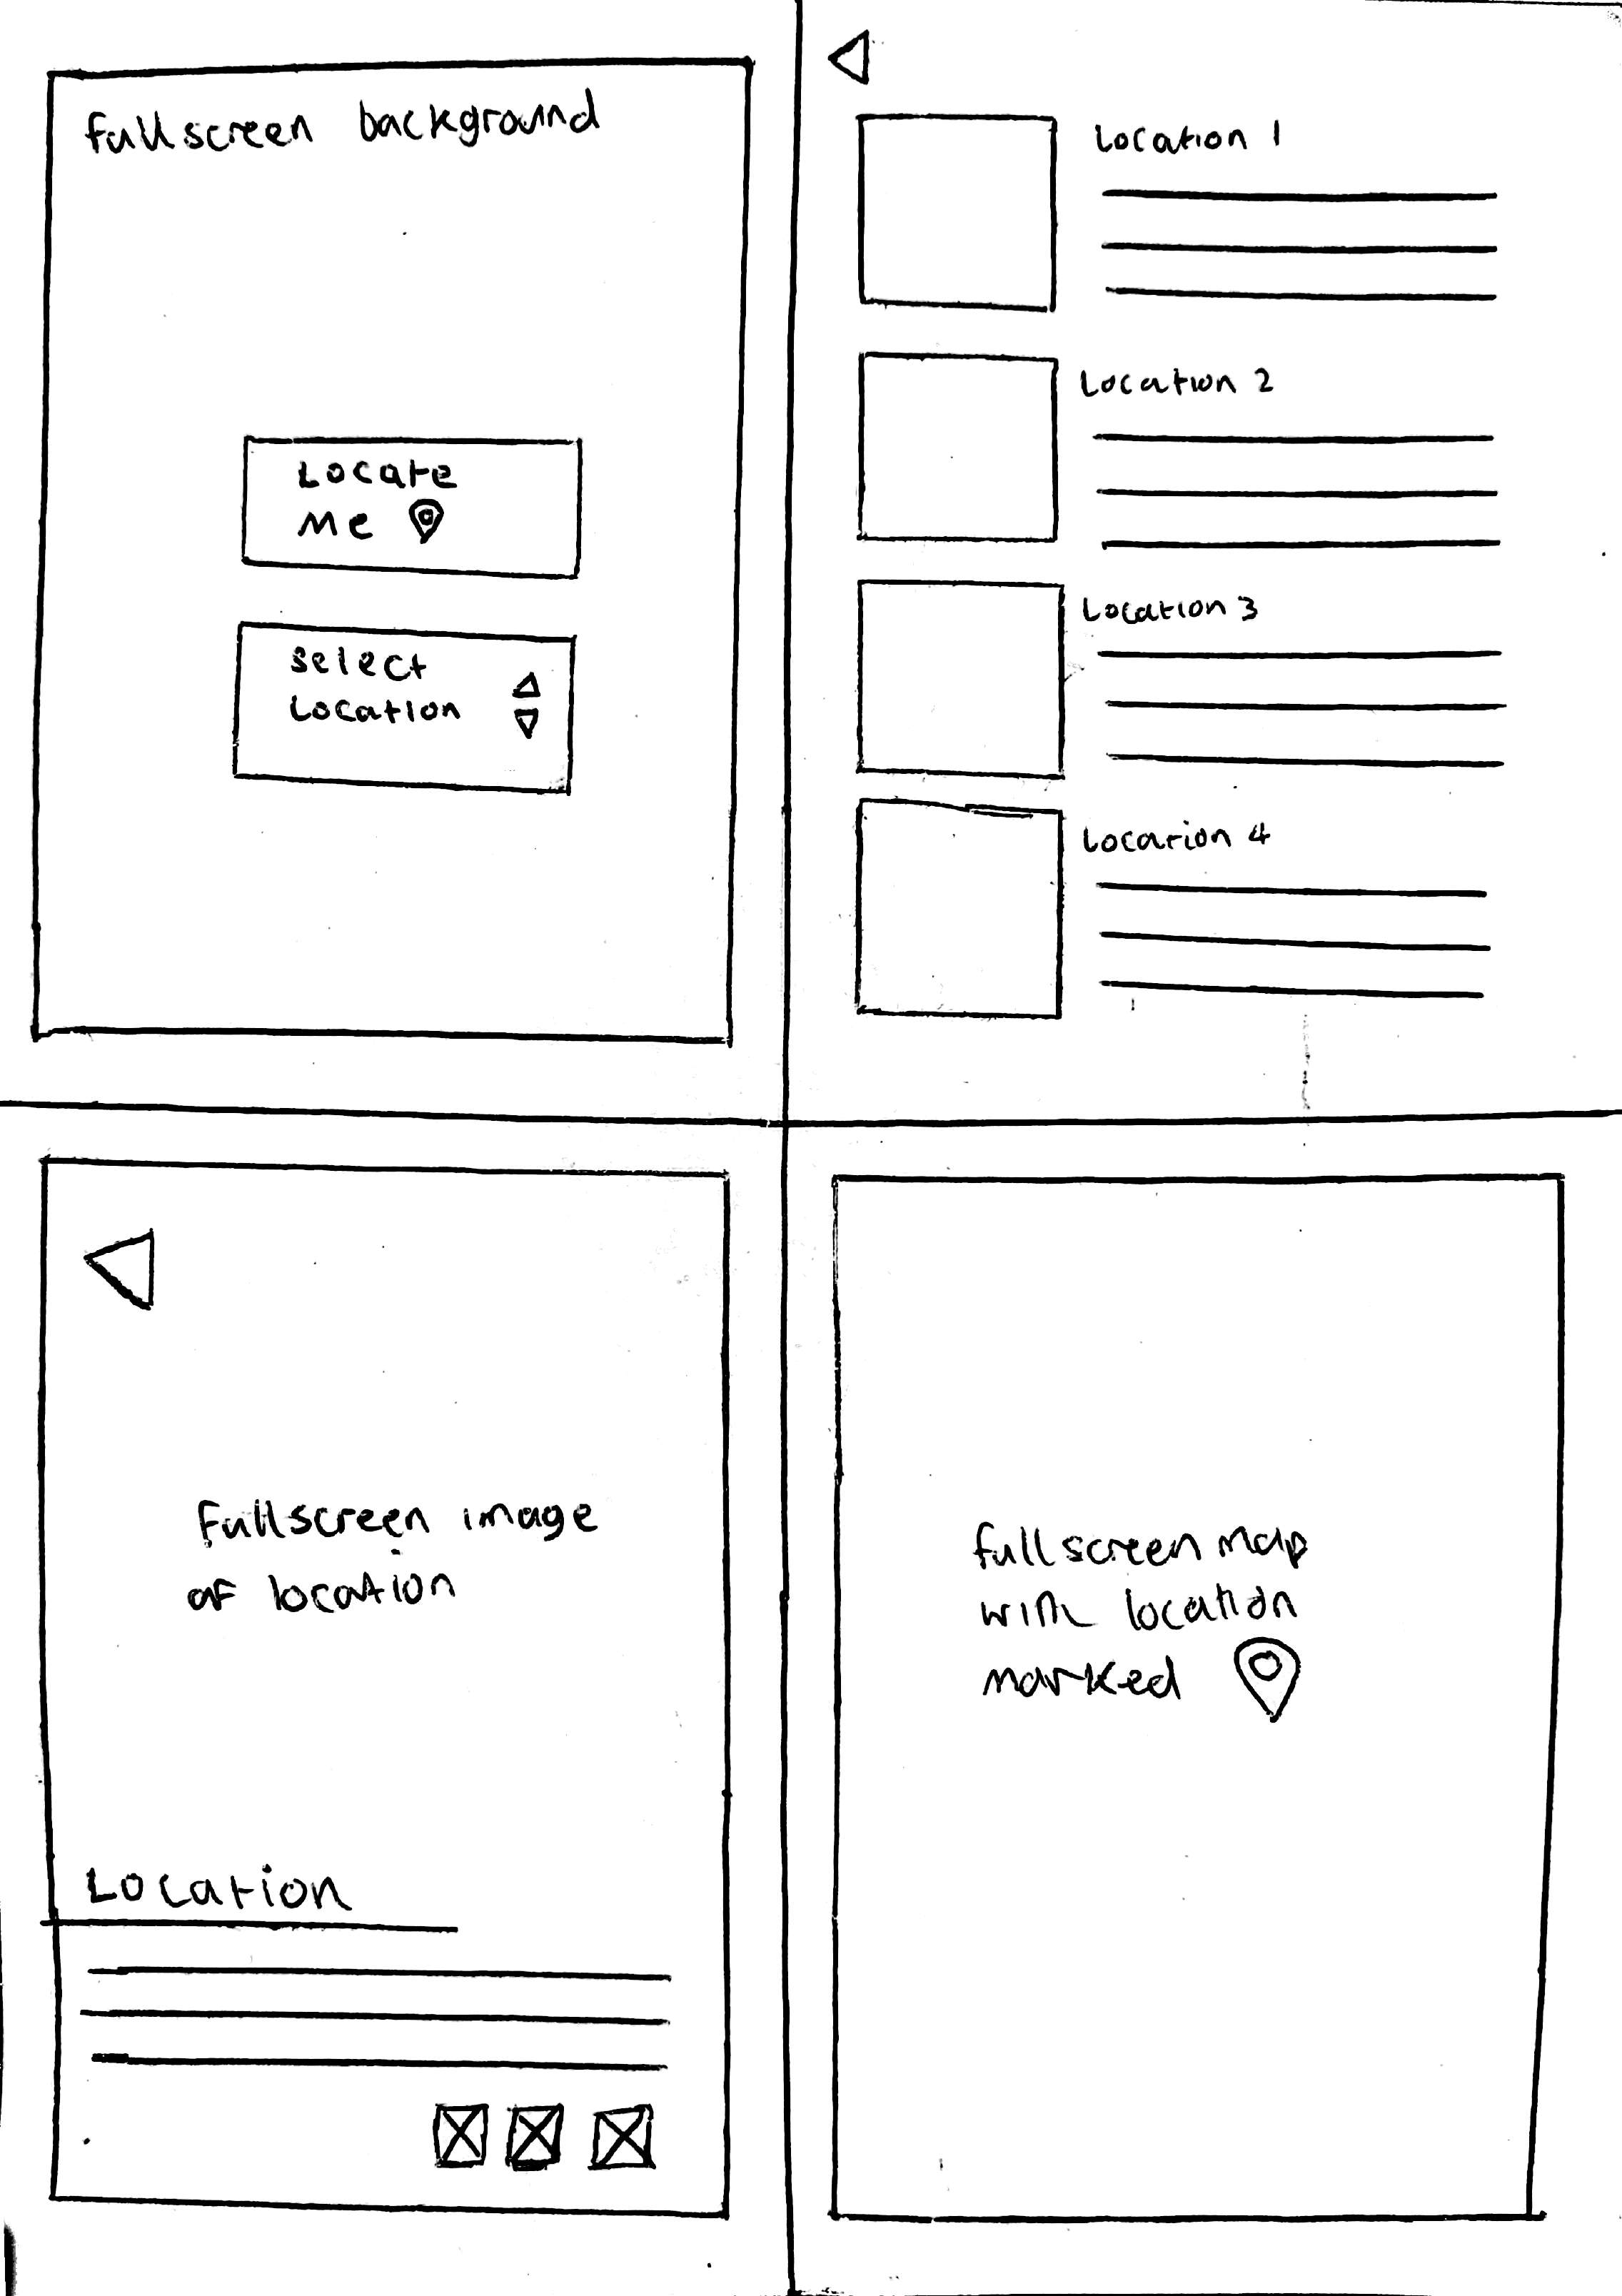 fullscreen background
Locate
Me
Select
Location
Location 1
Location 2
Location 3
Location 4
Fullscreen image
of location
Location
fullscreen map
with location
marked